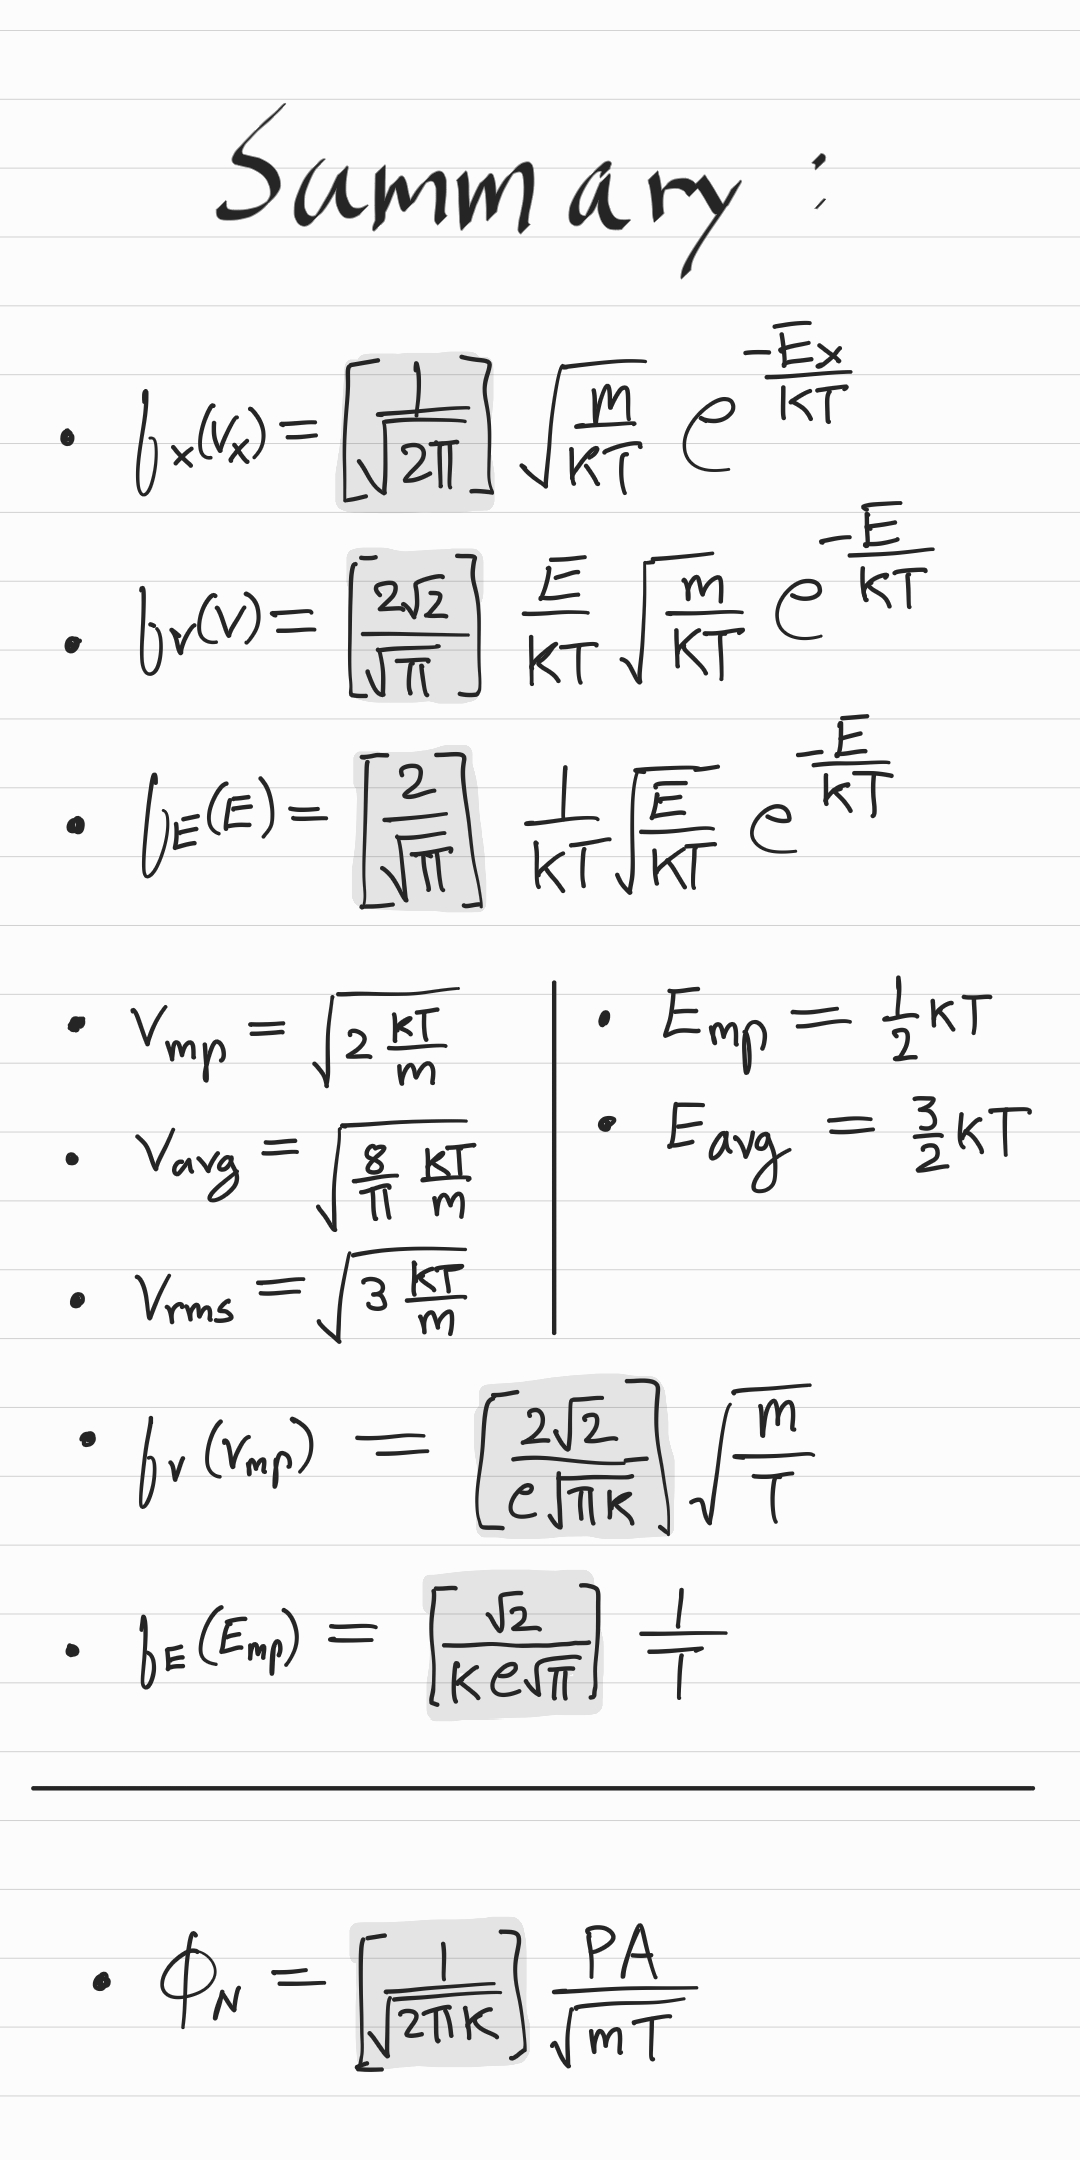 Summary :
• fₓ(Vₓ) = [1/√(2π)] √(m/KT) e^(-Eₓ/KT)
• fᵥ(V) = [2√2/√π] E/KT √(m/KT) e^(-E/KT)
• f_E(E) = [2/√π] 1/KT √(E/KT) e^(-E/KT)
• V_mp = √(2 KT/m)
• V_avg = √(8/π KT/m)
• V_rms = √(3 KT/m)
• E_mp = 1/2 KT
• E_avg = 3/2 KT
• fᵥ(V_mp) = [2√2/(e√(πK))] √(m/T)
• f_E(E_mp) = [√2/(K e√π)] 1/T
• ϕ_N = [1/√(2πK)] PA/√(mT)